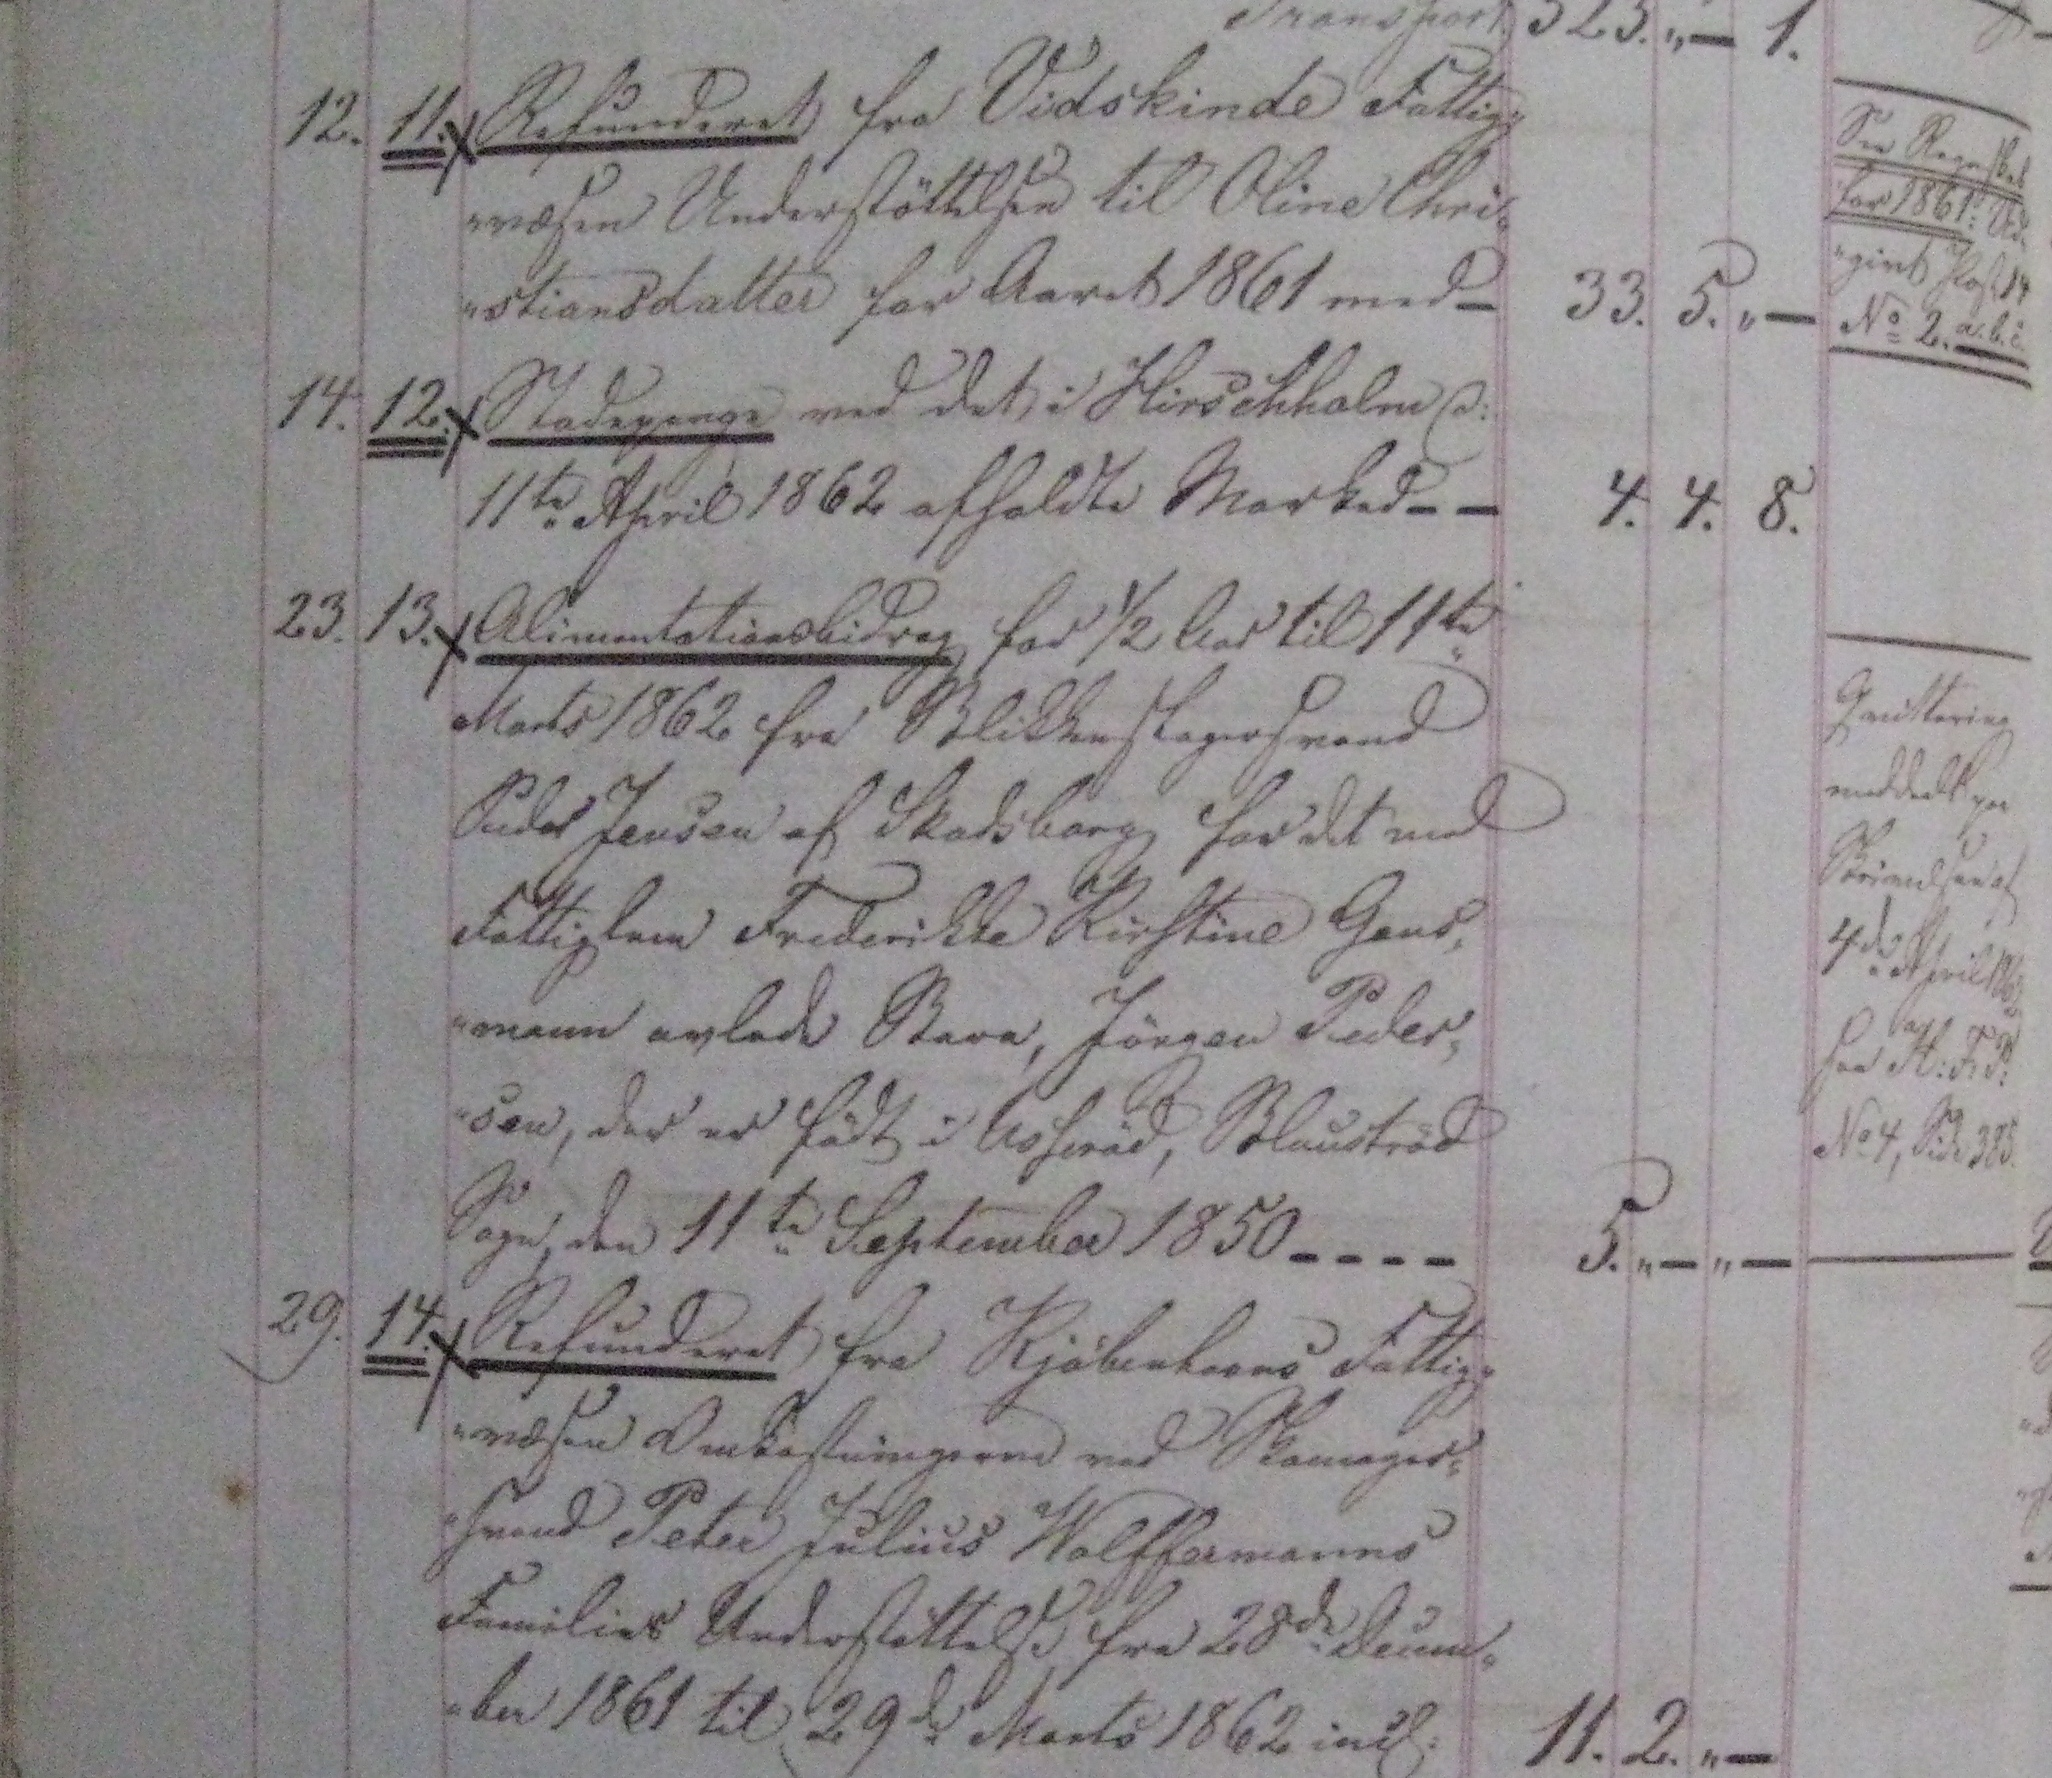 Transport 323. „— 1.
12. 11. Refunderet fra Vidskinde Fattig„
„væsen Understöttelsen til Oline Chri„
„stiansdatter for Aaret 1861 med — 33. 5. „—
See Regnskab
for 1861: Ud„
„givt Post 14
No 2. a. b. c.
14. 12. Stadepenge ved det i Hirschholm d:
11te April 1862 afholdte Marked — — 4. 4. 8.
23. 13. Alimentationsbidrag for 1/2 Aar til 11te
Marts 1862 fra Blikkenslagersvend
Peder Jensen af Skodsborg for det med
Fattiglem Frederikke Kirstine Gens„
„mann avlede Barn, Jörgen Peder„
„sen, der er födt i Asseröd, Blauströd
Sogn, den 11te September 1850 - - - - 5. „— „—
Qvittering
meddelt paa
Skrivelsen af
4de April 1862
see F: P:
No 4, Side 385.
29. 14. Refunderet fra Kjöbenhavns Fattig„
„væsen Omkostningerne ved Skomager„
„svend Peter Julius Wolffermanns
Families Understöttelse fra 28de Decem„
„ber 1861 til 29de Marts 1862 incl: 11. 2. „—